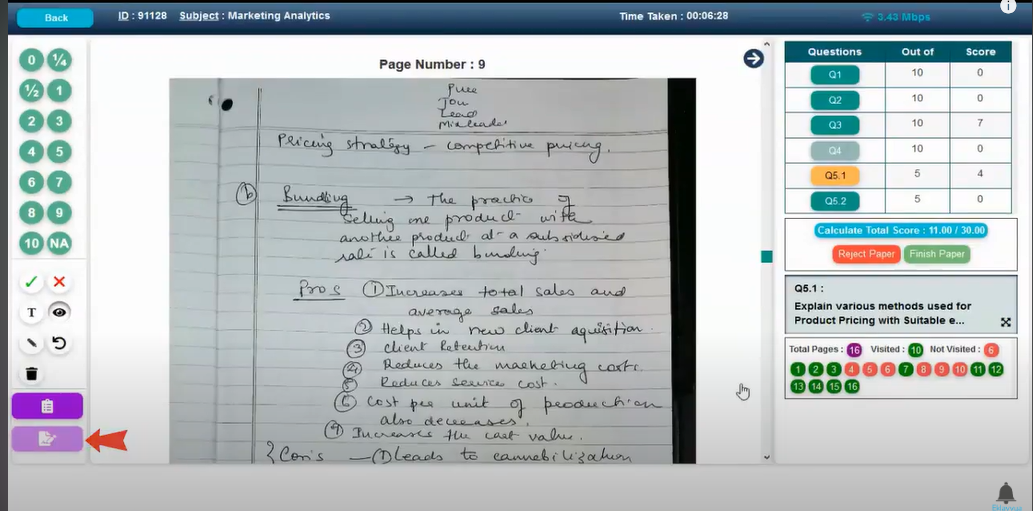 Back
ID : 91128 Subject : Marketing Analytics
Time Taken : 00:06:28
3.43 Mbps
i
0 ¼
½ 1
2 3
4 5
6 7
8 9
10 NA
T
Page Number : 9
Pure
Lead
Pricing strategy – competitive pricing.
(b) Bundling → The practice of
selling one product with
another product at a subsidised
rate is called bundling.
Pros ① Increases total sales and
average sales
② Helps in new client aquisition.
③ Client Retention
④ Reduces the marketing costs.
⑤ Reduces service cost.
⑥ Cost per unit of production
also decreases.
Increases the cart value.
Con's — ① Leads to cannebilization
Questions Out of Score
Q1 10 0
Q2 10 0
Q3 10 7
Q4 10 0
Q5.1 5 4
Q5.2 5 0
Calculate Total Score : 11.00 / 30.00
Reject Paper Finish Paper
Q5.1 :
Explain various methods used for
Product Pricing with Suitable e...
Total Pages : 16 Visited : 10 Not Visited : 6
1 2 3 4 5 6 7 8 9 10 11 12
13 14 15 16